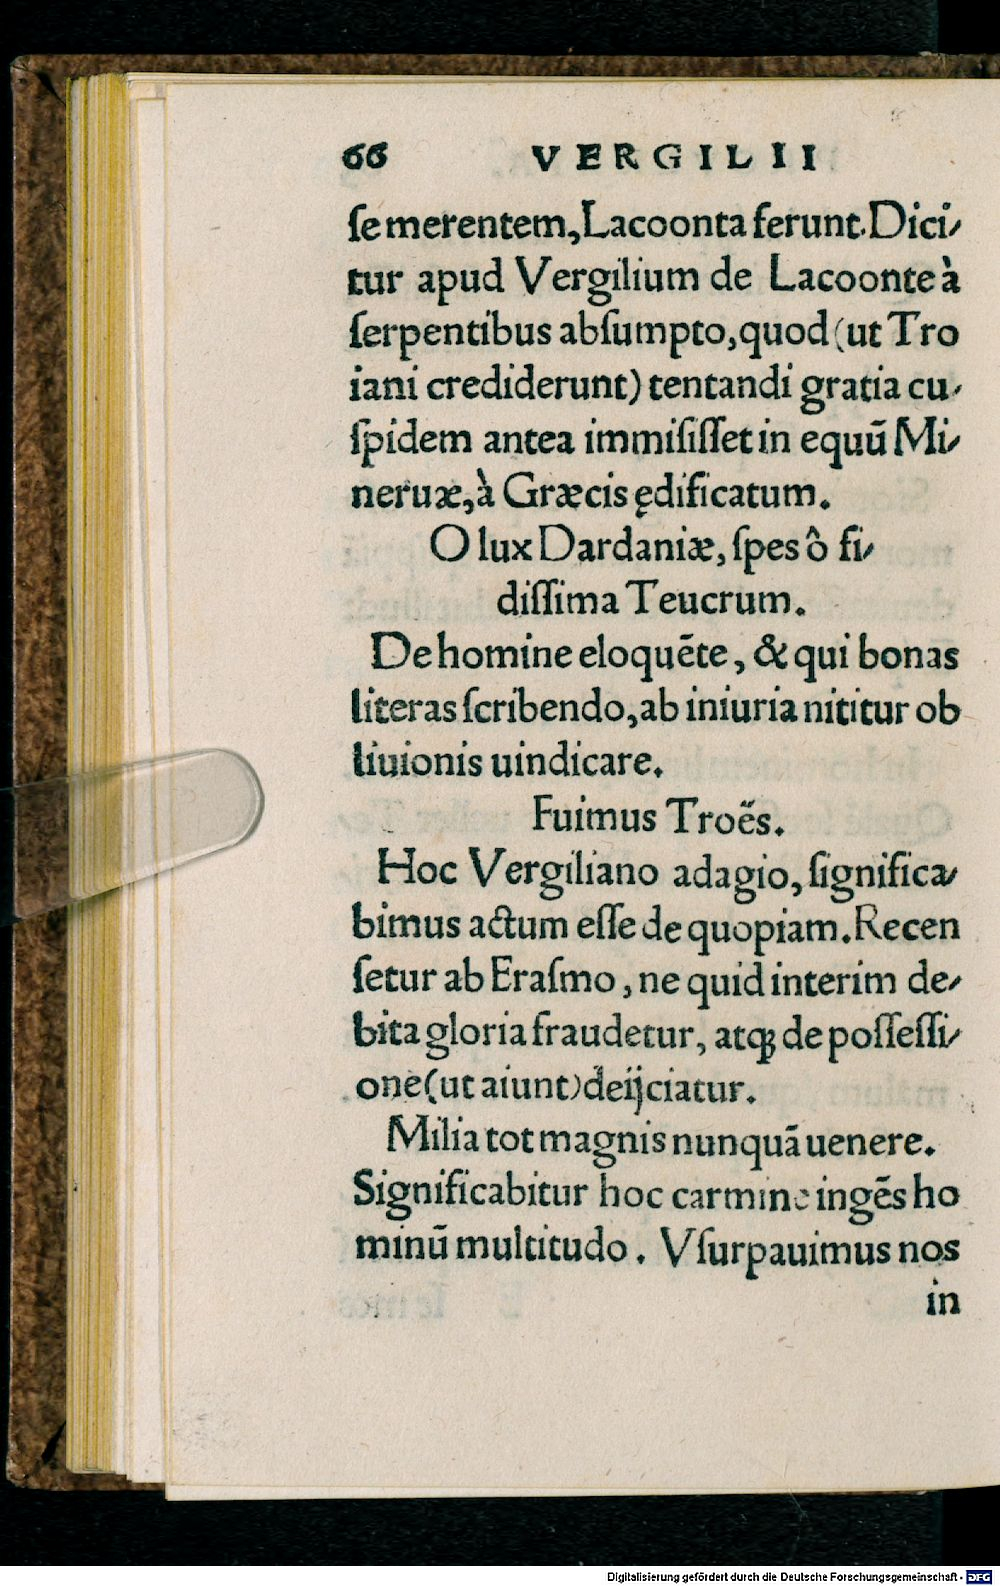 66 VERGILII
ſe merentem, Lacoonta ferunt. Dici⸗
tur apud Vergilium de Lacoonte à
ſerpentibus abſumpto, quod (ut Tro
iani crediderunt) tentandi gratia cu⸗
ſpidem antea immiſiſſet in equũ Mi⸗
neruæ, à Græcis ędificatum.
O lux Dardaniæ, ſpes ô fi⸗
diſſima Teucrum.
De homine eloquẽte, & qui bonas
literas ſcribendo, ab iniuria nititur ob
liuionis uindicare.
Fuimus Troës.
Hoc Vergiliano adagio, ſignifica⸗
bimus actum eſſe de quopiam. Recen
ſetur ab Eraſmo, ne quid interim de⸗
bita gloria fraudetur, atqꝫ de poſſeſſi⸗
one (ut aiunt) deijciatur.
Milia tot magnis nunquã uenere.
Significabitur hoc carmine ingẽs ho
minũ multitudo. Vſurpauimus nos
in
Digitalisierung gefördert durch die Deutsche Forschungsgemeinschaft - DFG